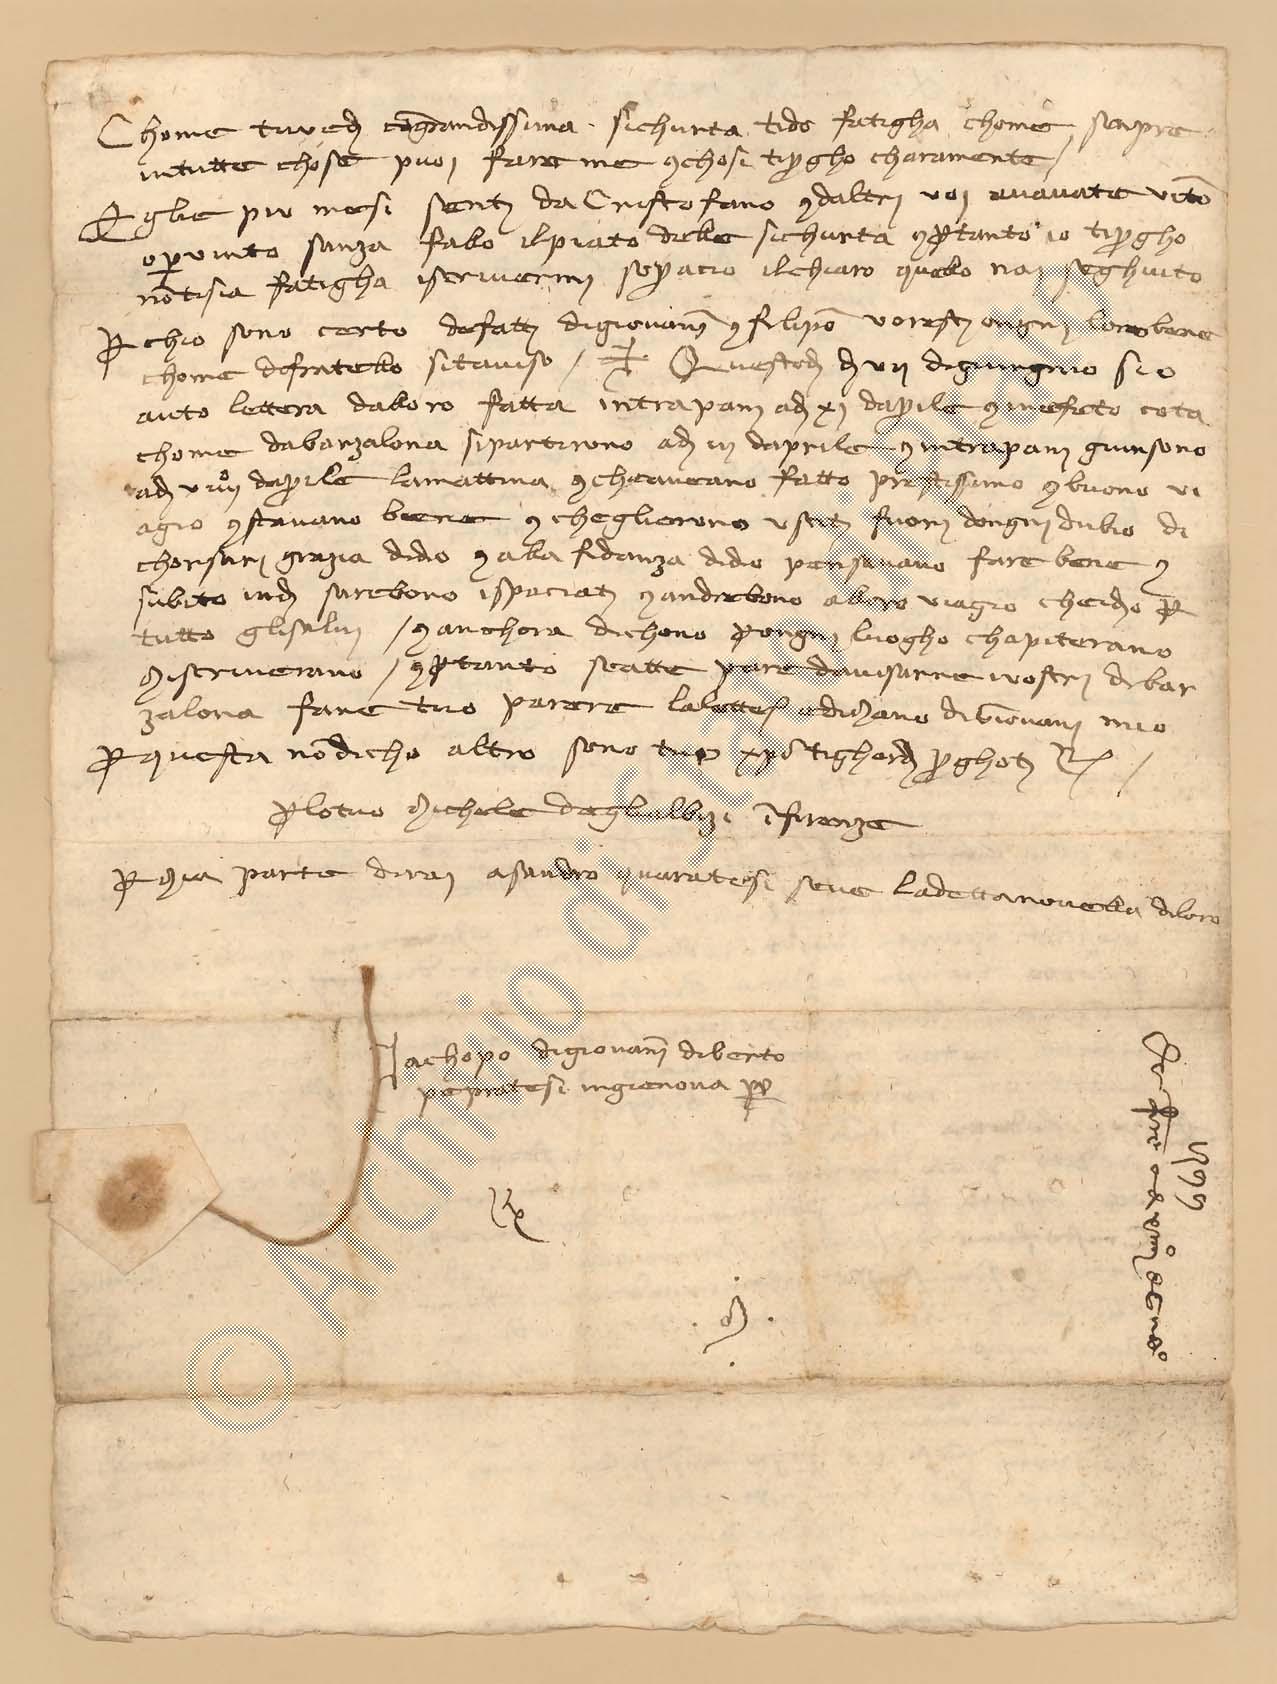 Chome tu vedj cō grandissima sichurta ti do fatigha chome senpre
in tutte chose puoi fare me e chosi ti pregho charamente /
Egl'e piu mesi sentj da Cristofano e d'altrj voj avavate vītō
o per vinto sanza fallo il piato delle sichurta e pertanto io ti pregho
nō ti sia fatigha iscrivermj sopracio il chiaro quello n'ai seghuito
Perch'io sono certo de fattj di giovannj e filipo vorestj ongnj loro bene
chome di fratello sì t'aviso / Questo dj dj vij di giungnio si o
auto lettera da lloro fatta in trapanj a dj xj d'aprile e in efetto cōta
chome da barzalona si partirono a dj iij d'aprile e in trapanj giunsono
a dj viiij d'aprile la mattina e che aveano fatto prestissimo e buono vi
agio e stavano bene e ch'eglierono uscitj fuorj d'ongnj dubio di
chorsarj grazia di dio e alla fidanza di dio pensavano fare bene e
subito indj sarebono ispaciatj e andrebono a lloro viagio che idio per
tutto gli salvj / e anchora dichono per ongnj luogho chapiterano
mi scriverano / e pertanto se atte pare d'avisarne i vostrj di bar
zalona fane tuo parere la letta e di mano di giovannj mio
Per questa nō dicho altro sono tuo xpō ti ghardj
Per lo tuo Michele degl'albizi ī firenze
Per mia parte diraj a sandro quaratesi se v'e la detta novella di loro
Jachopo di giovannj di berto
pepi pratesi in gienova
© Archivio di Stato di Prato